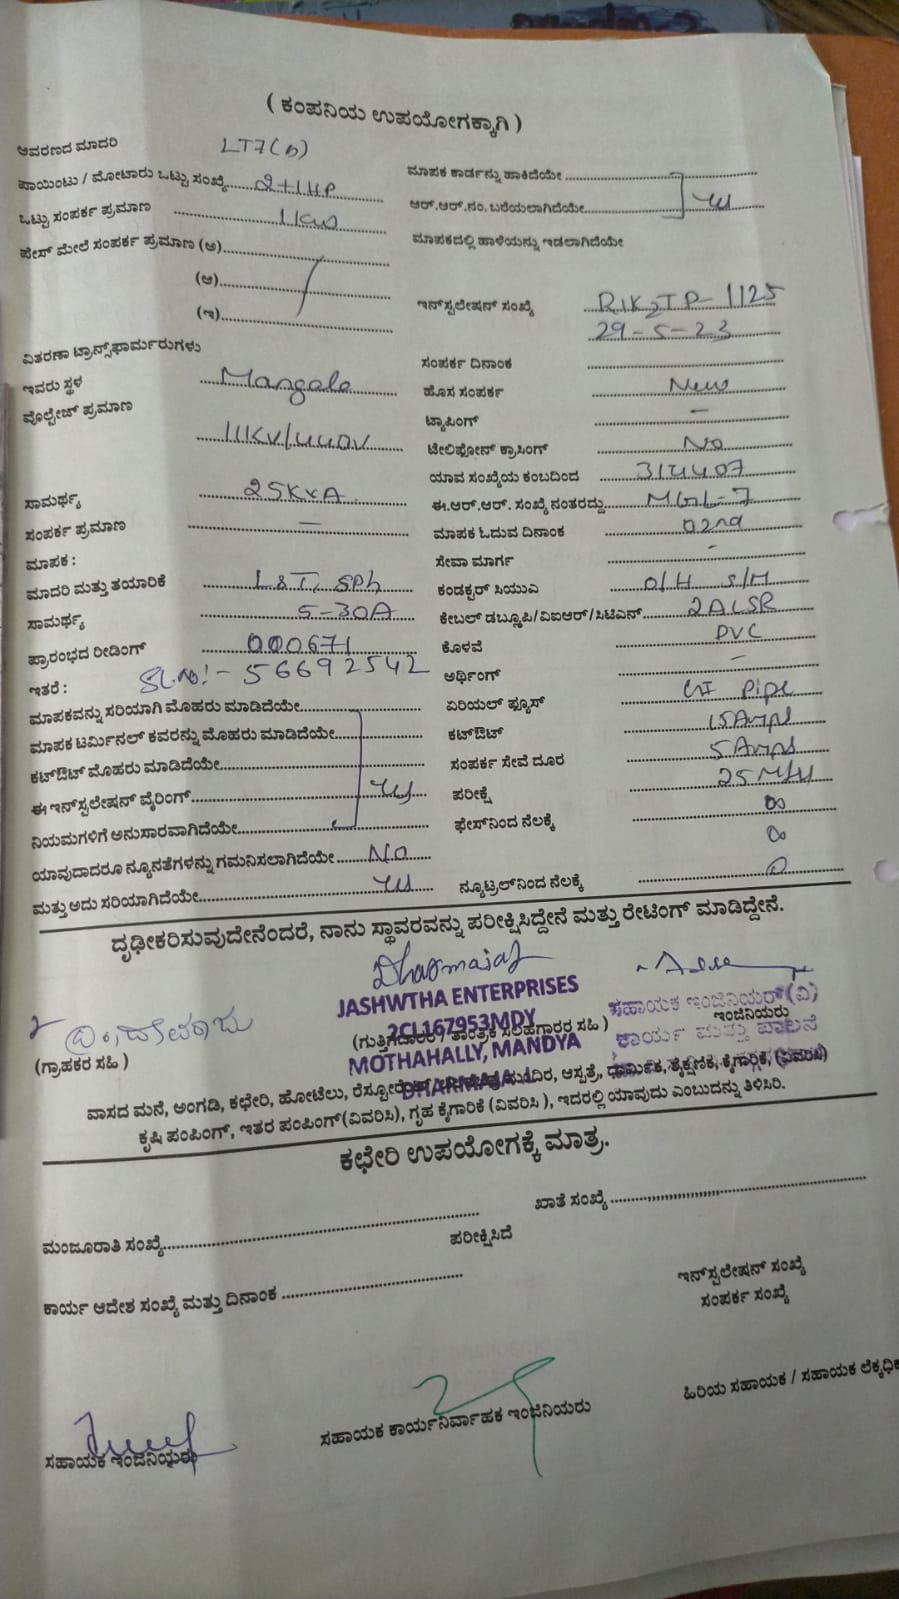 ( ಕಂಪನಿಯ ಉಪಯೋಗಕ್ಕಾಗಿ )
ಆವರಣದ ಮಾದರಿ LT7(b)
ಪಾಯಿಂಟು / ಮೋಟಾರು ಒಟ್ಟು ಸಂಖ್ಯೆ 2+1HP
ಒಟ್ಟು ಸಂಪರ್ಕ ಪ್ರಮಾಣ 1KW
ಫೇಸ್ ಮೇಲೆ ಸಂಪರ್ಕ ಪ್ರಮಾಣ (ಅ)
(ಆ)
(ಇ)
ವಿತರಣಾ ಟ್ರಾನ್ಸ್‌ಫಾರ್ಮರುಗಳು
ಇವರು ಸ್ಥಳ Mangala
ವೊಲ್ಟೇಜ್ ಪ್ರಮಾಣ
11KV/440V
ಸಾಮರ್ಥ್ಯ 25KVA
ಸಂಪರ್ಕ ಪ್ರಮಾಣ —
ಮಾಪಕ :
ಮಾದರಿ ಮತ್ತು ತಯಾರಿಕೆ L&T, SPh
ಸಾಮರ್ಥ್ಯ 5-30A
ಪ್ರಾರಂಭದ ರೀಡಿಂಗ್ 000671
ಇತರೆ : Sl.no:- 56692542
ಮಾಪಕವನ್ನು ಸರಿಯಾಗಿ ಮೊಹರು ಮಾಡಿದೆಯೇ
ಮಾಪಕ ಟರ್ಮಿನಲ್ ಕವರನ್ನು ಮೊಹರು ಮಾಡಿದೆಯೇ
ಕಟ್‌ಔಟ್ ಮೊಹರು ಮಾಡಿದೆಯೇ
ಈ ಇನ್‌ಸ್ಟಲೇಷನ್ ವೈರಿಂಗ್
ನಿಯಮಗಳಿಗೆ ಅನುಸಾರವಾಗಿದೆಯೇ
ಯಾವುದಾದರೂ ನ್ಯೂನತೆಗಳನ್ನು ಗಮನಿಸಲಾಗಿದೆಯೇ NO
ಮತ್ತು ಅದು ಸರಿಯಾಗಿದೆಯೇ
ಮಾಪಕ ಕಾರ್ಡನ್ನು ಹಾಕಿದೆಯೇ
ಆರ್.ಆರ್.ನಂ. ಬರೆಯಲಾಗಿದೆಯೇ
ಮಾಪಕದಲ್ಲಿ ಹಾಳೆಯನ್ನು ಇಡಲಾಗಿದೆಯೇ
ಇನ್‌ಸ್ಟಲೇಷನ್ ಸಂಖ್ಯೆ 1125
29-5-23
ಸಂಪರ್ಕ ದಿನಾಂಕ
ಹೊಸ ಸಂಪರ್ಕ New
ಟ್ಯಾಪಿಂಗ್ —
ಟೇಲಿಫೋನ್ ಕ್ರಾಸಿಂಗ್ No
ಯಾವ ಸಂಖ್ಯೆಯ ಕಂಬದಿಂದ
ಈ.ಆರ್.ಆರ್. ಸಂಖ್ಯೆ ನಂತರದ್ದು MGL-7
ಮಾಪಕ ಓದುವ ದಿನಾಂಕ 02nd
ಸೇವಾ ಮಾರ್ಗ -
ಕಂಡಕ್ಟರ್ ಸಿಯುಎ O/H S/M
ಕೇಬಲ್ ಡಬ್ಲೂಪಿ/ವಿಐಆರ್/ಸಿಟಿಎಸ್ 2ACSR
ಕೊಳವೆ PVC
ಅರ್ಥಿಂಗ್ —
ಏರಿಯಲ್ ಫ್ಯೂಸ್ GI Pipe
ಕಟ್‌ಔಟ್ 15Amps
ಸಂಪರ್ಕ ಸೇವೆ ದೂರ 5Amps
ಪರೀಕ್ಷೆ
ಫೇಸ್‌ನಿಂದ ನೆಲಕ್ಕೆ ∞
∞
ನ್ಯೂಟ್ರಲ್‌ನಿಂದ ನೆಲಕ್ಕೆ 0
ದೃಢೀಕರಿಸುವುದೇನೆಂದರೆ, ನಾನು ಸ್ಥಾವರವನ್ನು ಪರೀಕ್ಷಿಸಿದ್ದೇನೆ ಮತ್ತು ರೇಟಿಂಗ್ ಮಾಡಿದ್ದೇನೆ.
Dharmaraj
JASHWTHA ENTERPRISES
2CL167953MDY
MOTHAHALLY, MANDYA
DHARMARAJ
ಸಹಾಯಕ ಇಂಜಿನಿಯರ್ (ವಿ)
ಕಾರ್ಯ ಮತ್ತು ಪಾಲನೆ
(ಗ್ರಾಹಕರ ಸಹಿ ) (ಗುತ್ತಿಗೆದಾರರ / ತಾಂತ್ರಿಕ ಸಲಹಗಾರರ ಸಹಿ ) ಇಂಜಿನಿಯರು
ವಾಸದ ಮನೆ, ಅಂಗಡಿ, ಕಛೇರಿ, ಹೋಟೆಲು, ರೆಸ್ಟೋರೆಂಟ್, ಆಸ್ಪತ್ರೆ, ಧಾರ್ಮಿಕ, ಶೈಕ್ಷಣಿಕ, ಕೈಗಾರಿಕೆ, (ವಿವರಿಸಿ)
ಕೃಷಿ ಪಂಪಿಂಗ್, ಇತರ ಪಂಪಿಂಗ್(ವಿವರಿಸಿ), ಗೃಹ ಕೈಗಾರಿಕೆ (ವಿವರಿಸಿ ), ಇದರಲ್ಲಿ ಯಾವುದು ಎಂಬುದನ್ನು ತಿಳಿಸಿರಿ.
ಕಛೇರಿ ಉಪಯೋಗಕ್ಕೆ ಮಾತ್ರ.
ಮಂಜೂರಾತಿ ಸಂಖ್ಯೆ ಖಾತೆ ಸಂಖ್ಯೆ
ಪರೀಕ್ಷಿಸಿದೆ
ಕಾರ್ಯ ಆದೇಶ ಸಂಖ್ಯೆ ಮತ್ತು ದಿನಾಂಕ ಇನ್‌ಸ್ಟಲೇಷನ್ ಸಂಖ್ಯೆ
ಸಂಪರ್ಕ ಸಂಖ್ಯೆ
ಸಹಾಯಕ ಇಂಜಿನಿಯರು ಸಹಾಯಕ ಕಾರ್ಯನಿರ್ವಾಹಕ ಇಂಜಿನಿಯರು ಹಿರಿಯ ಸಹಾಯಕ / ಸಹಾಯಕ ಲೆಕ್ಕಧಿಕ